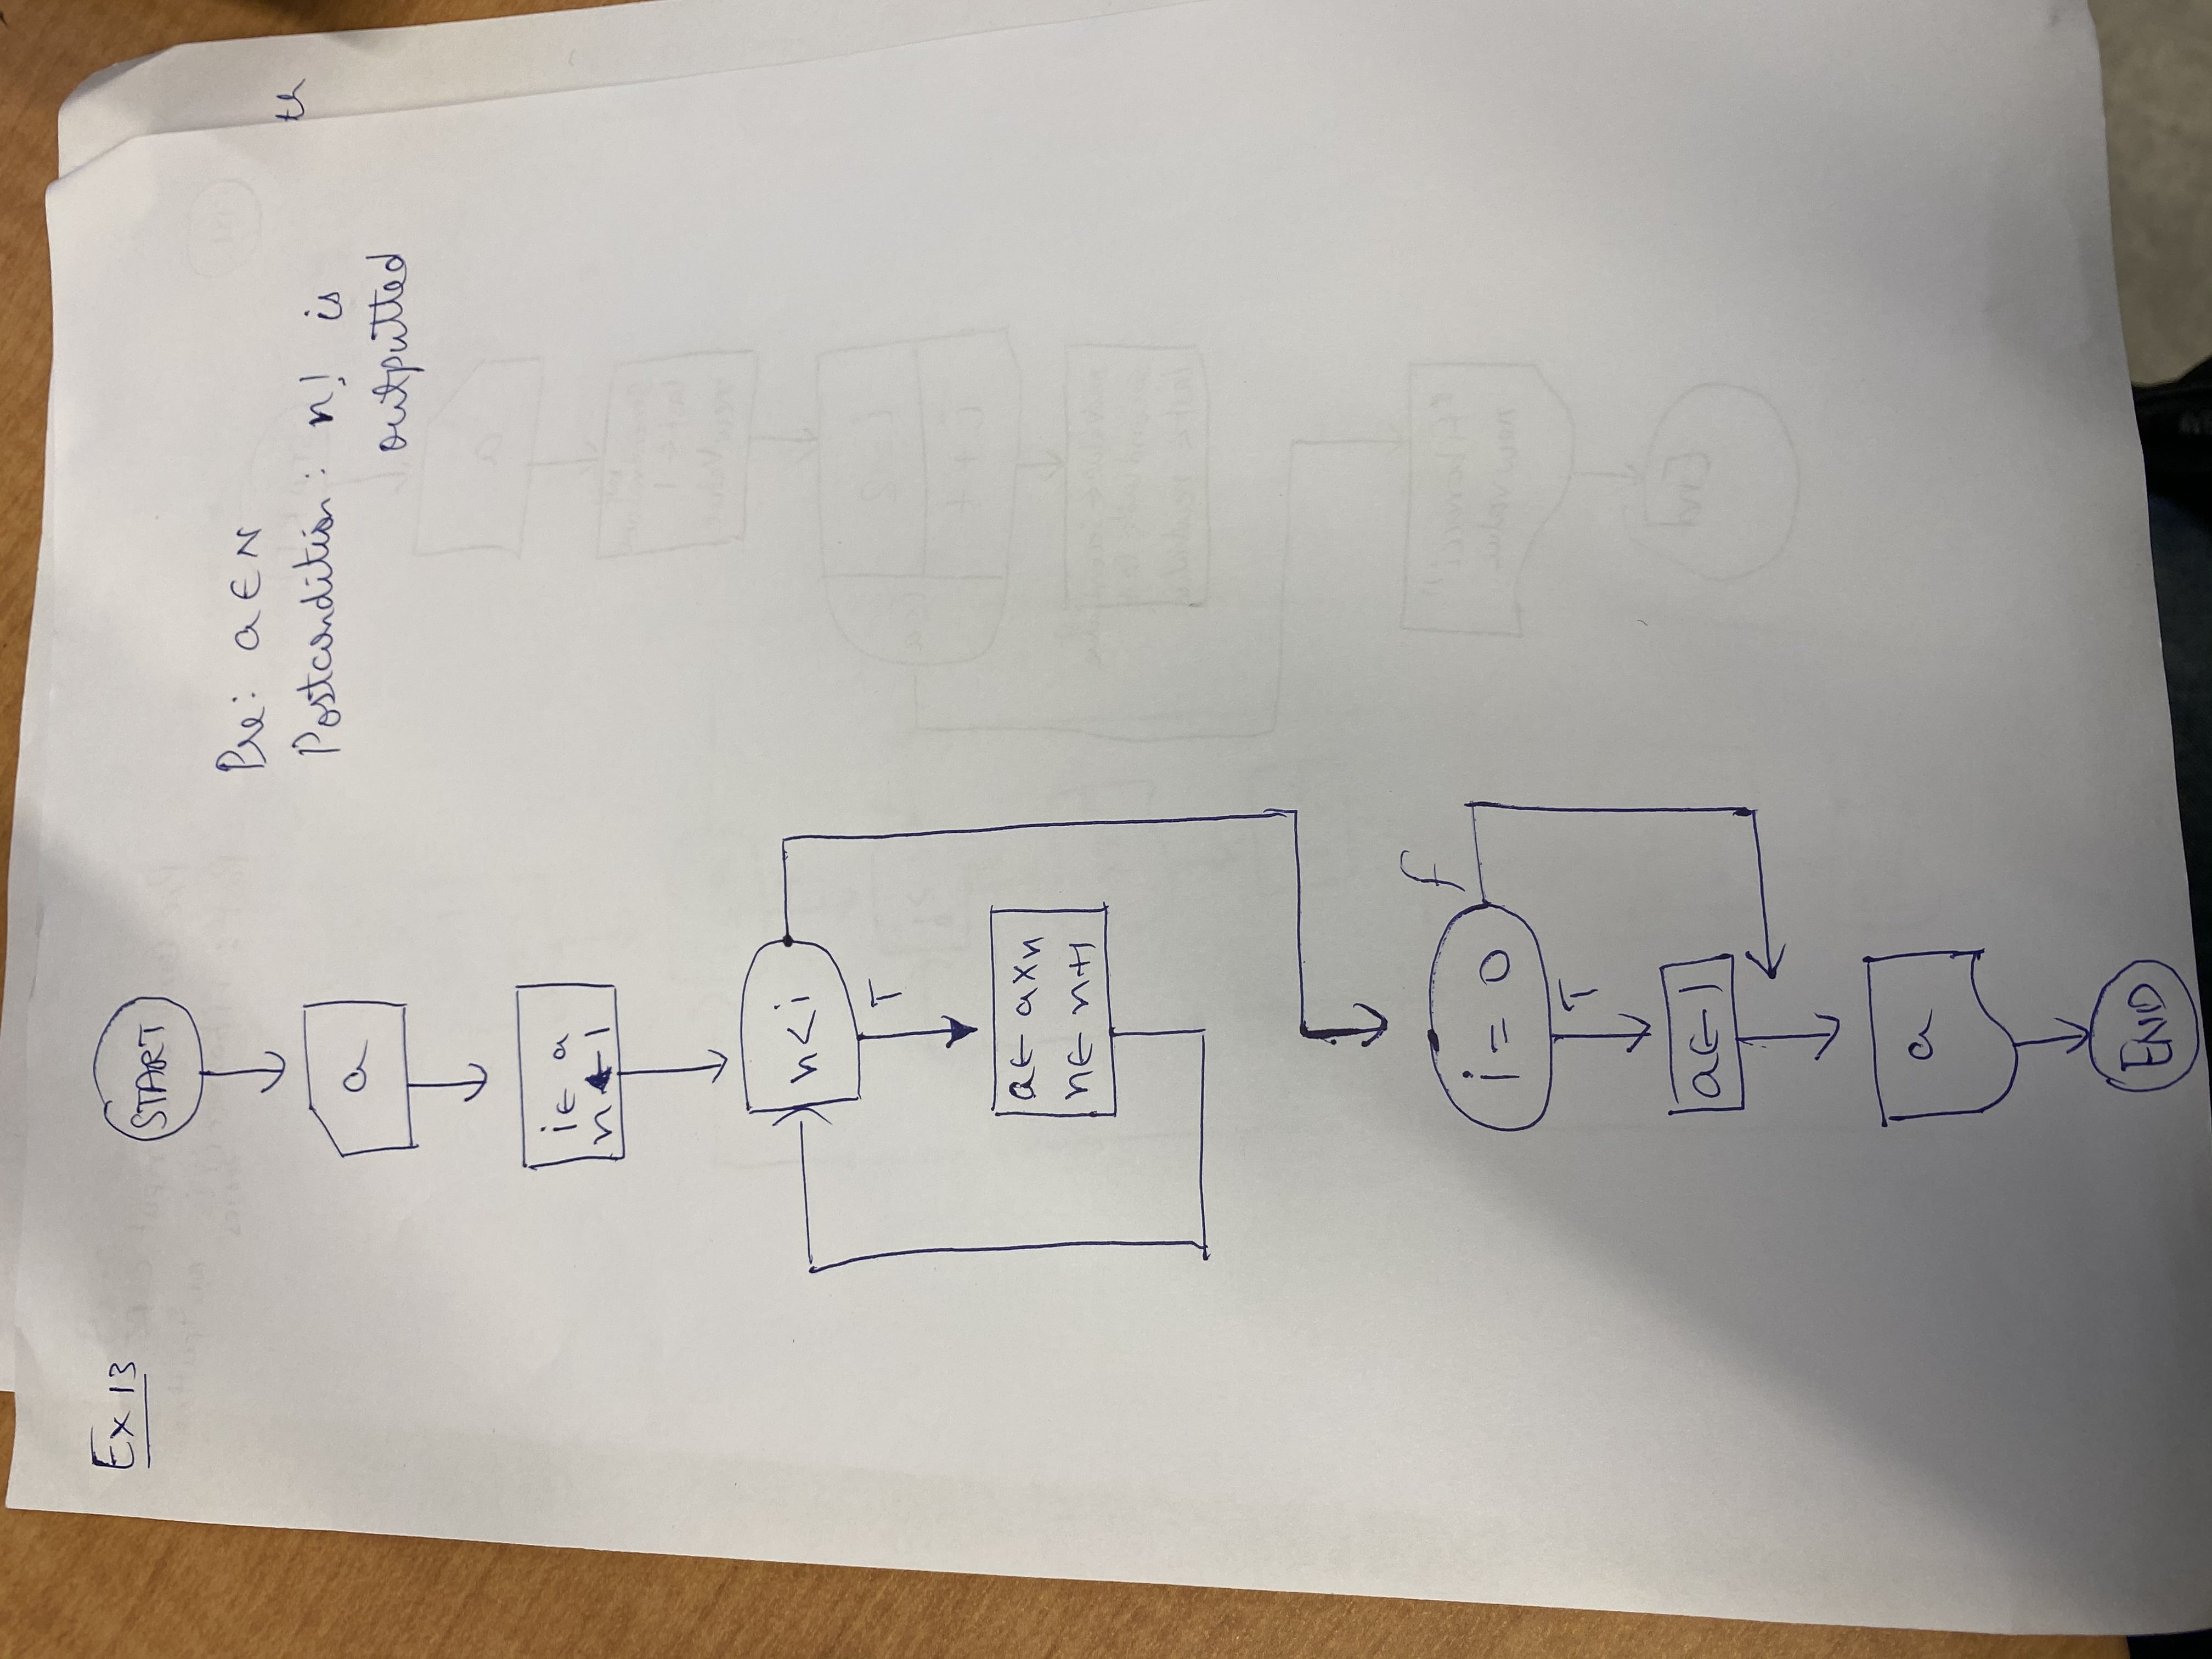 Ex 13
START
Pre: a ∈ N
Postcondition: n! is
outputted
th
a
i ← a
n ← 1
n < i
T
a ← a × n
n ← n+1
i = 0
f
T
a ← 1
a
END